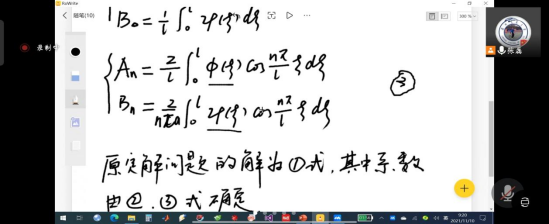 随笔(10)
B₀ = 1/l ∫₀ˡ ψ(ξ)dξ
Aₙ = 2/l ∫₀ˡ φ(ξ) cos nπ/l ξ dξ
③
Bₙ = 2/nπa ∫₀ˡ ψ(ξ) cos nπ/l ξ dξ
原定解问题的解为①式,其中系数
由②、③式确定
9:20
2021/11/10